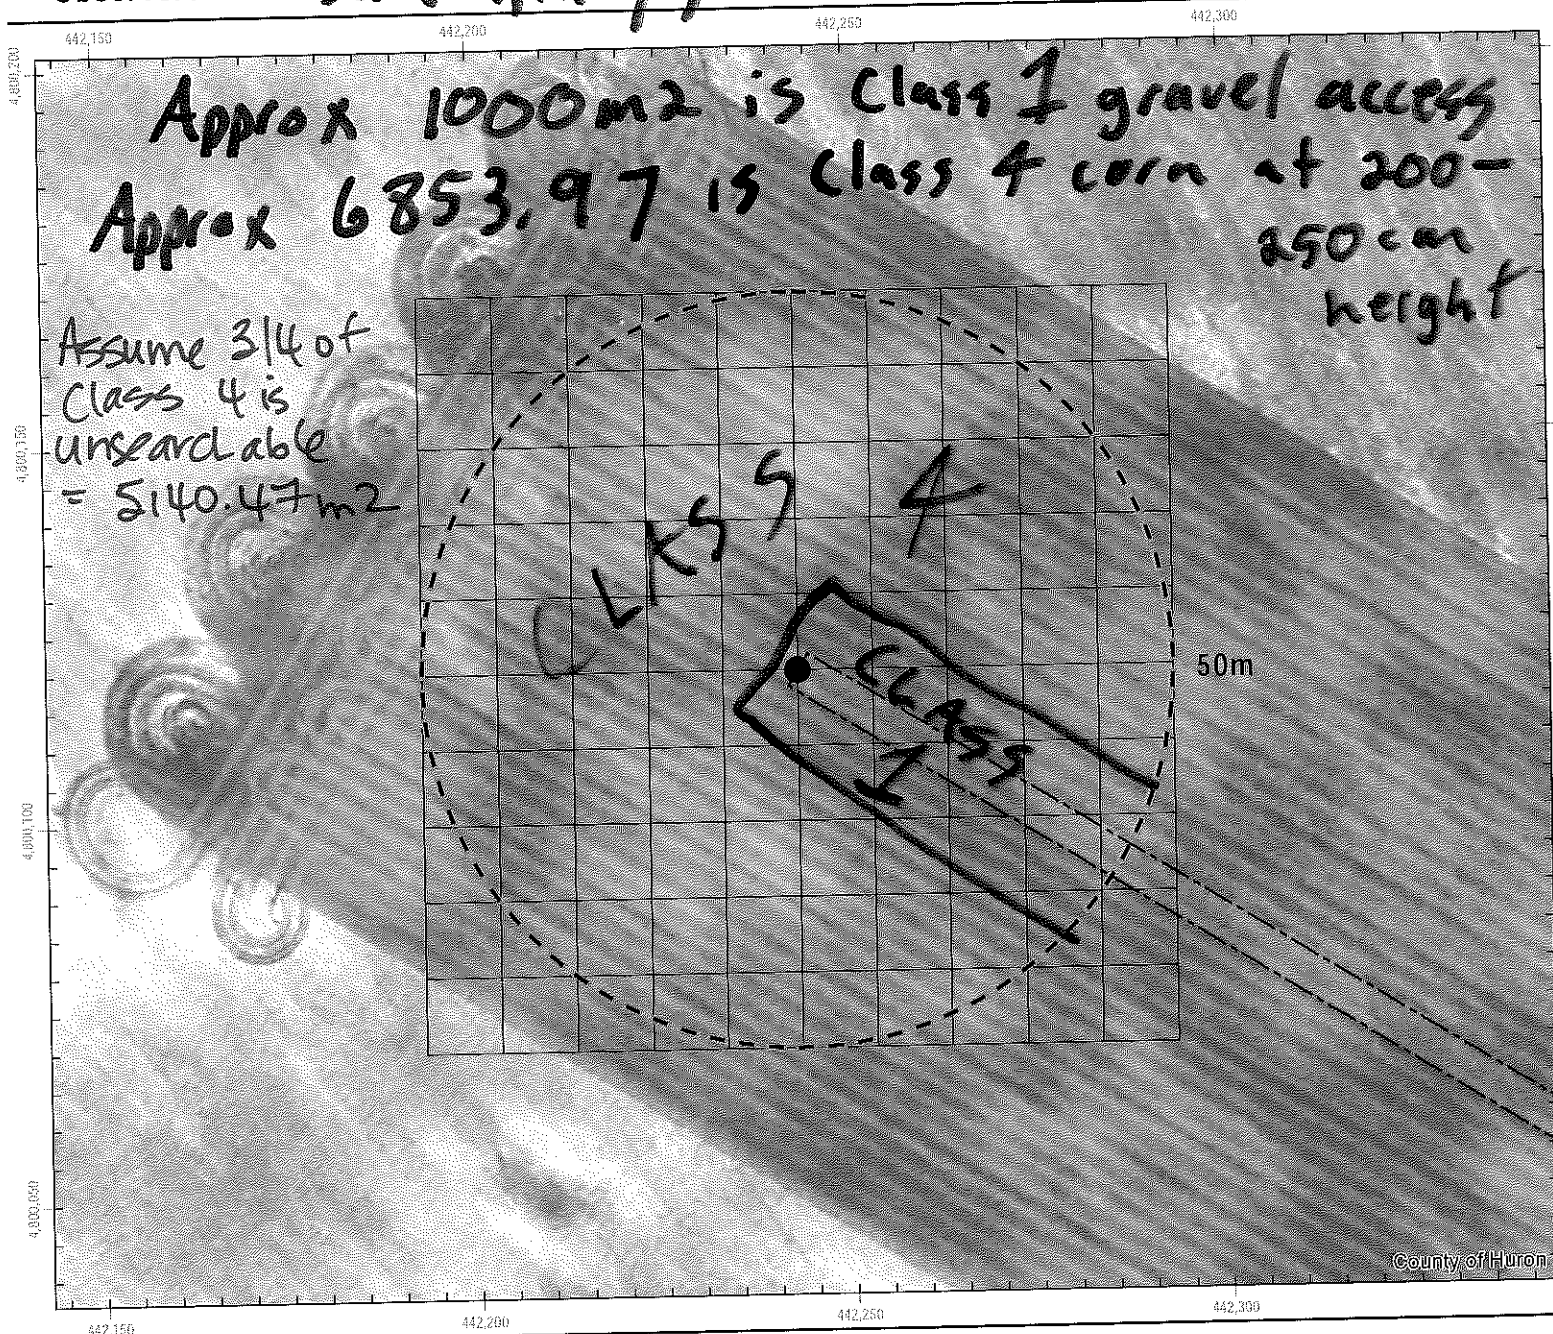 442,150 442,200 442,250 442,300
4,800,200
Approx 1000m2 is Class 1 gravel access
Approx 6853.97 is Class 4 corn at 200-
250cm
height
Assume 3/4 of
Class 4 is
unsearchable
= 5140.47m2
4,800,150
CLASS 4
CLASS
1
50m
4,800,100
4,800,050
County of Huron
442,150 442,200 442,250 442,300